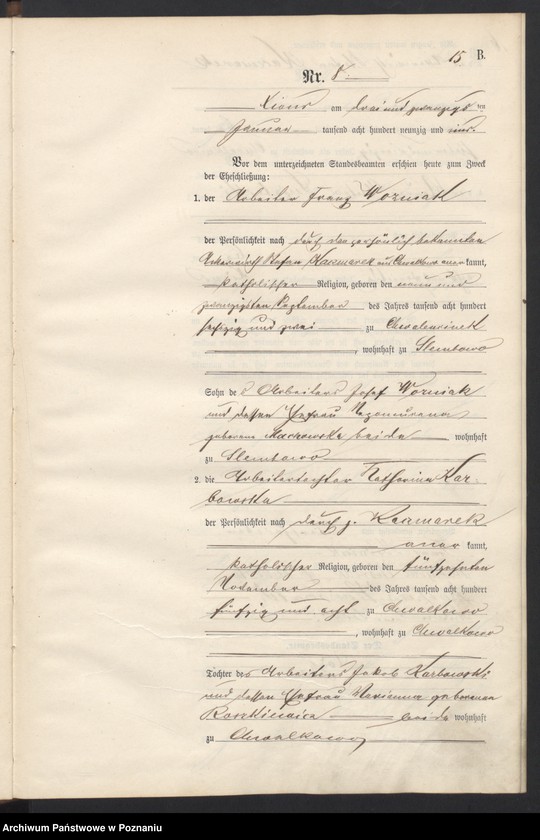 15 B.
Nr. 8
Xions am drei und zwanzigsten
Januar tausend acht hundert neunzig und
Vor dem unterzeichneten Standesbeamten erschien heute zum Zweck
der Eheschließung:
1. der Arbeiter Franz Wozniak
der Persönlichkeit nach durch den persönlich bekannten
Stefan Kaczmarek aus aner kannt,
katholischer Religion, geboren den neun und
zwanzigsten September des Jahres tausend acht hundert
sechzig und zwei zu
, wohnhaft zu
Sohn des Arbeiters Josef Wozniak
und dessen Ehefrau
geborene beide wohnhaft
zu
2. die Arbeitertochter Katharina Kar-
bowska
der Persönlichkeit nach durch p. Kaczmarek
aner kannt,
katholischer Religion, geboren den fünfzehnten
November des Jahres tausend acht hundert
und acht zu Chwalkowo
, wohnhaft zu Chwalkowo
Tochter des Arbeiters Jakob Karbowski
und dessen Ehefrau Marianna geborenen
beide wohnhaft
zu Chwalkowo
Archiwum Państwowe w Poznaniu